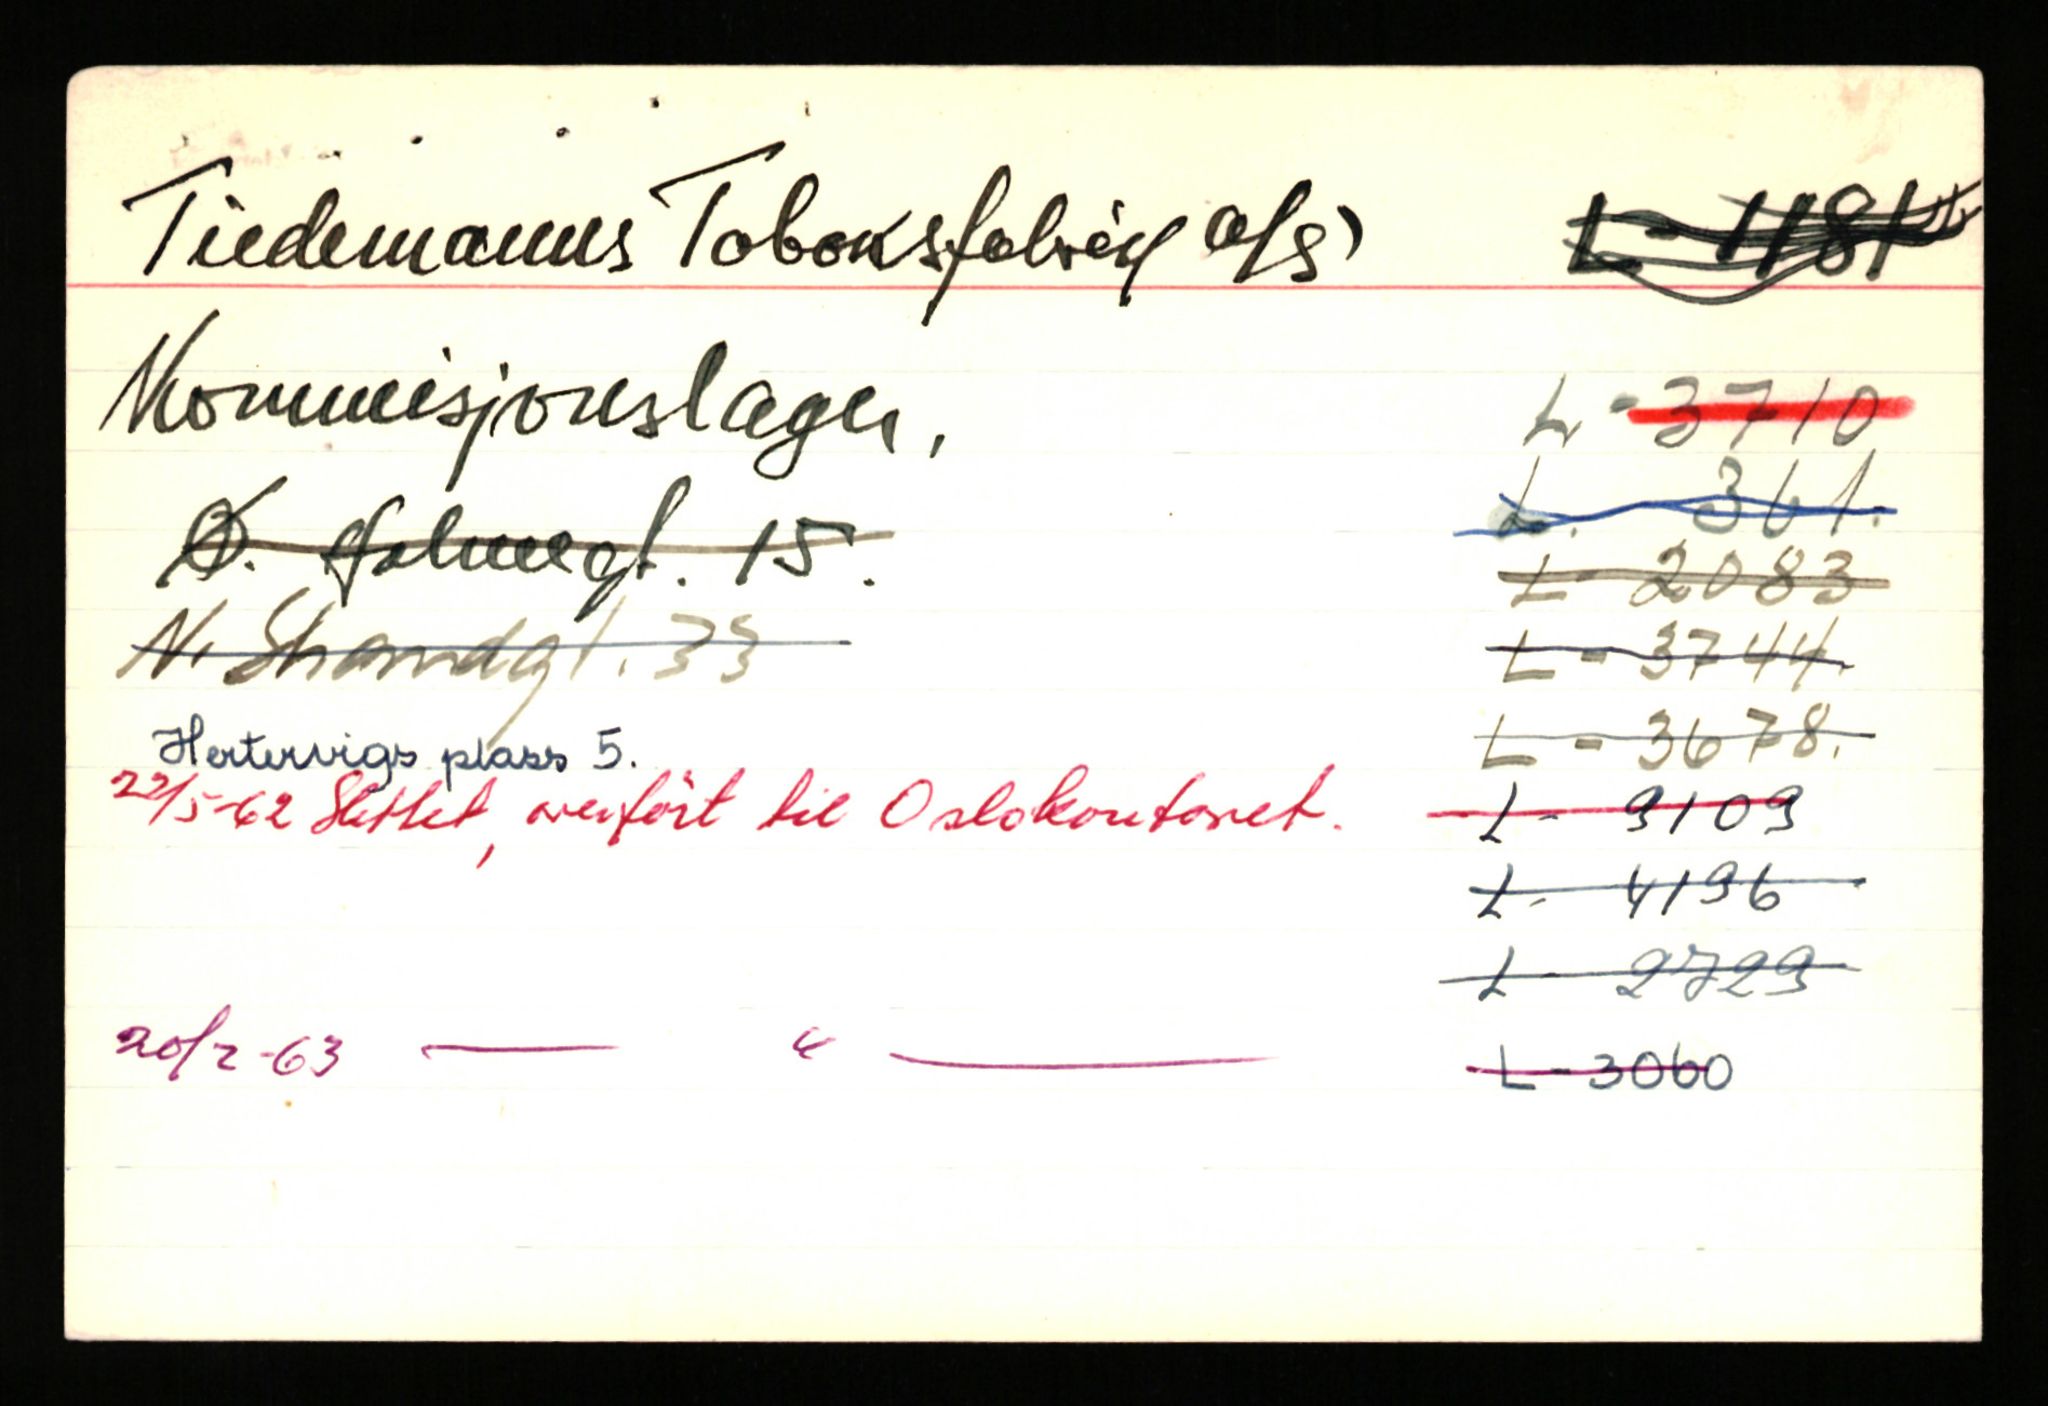 Tiedemanns Tobaksfabrik a/s) L-1181
Kommisjonslager, L-3710
L. 361.
Ø. Holmegt. 15. L-2083
N. Strandgt. 33 L-3744.
Hertervigs plass 5. L-3678.
22/5-62 Slettet, overført til Oslokontoret. L- 3109
L- 4196
L- 2729
20/2-63 — " — L-3060